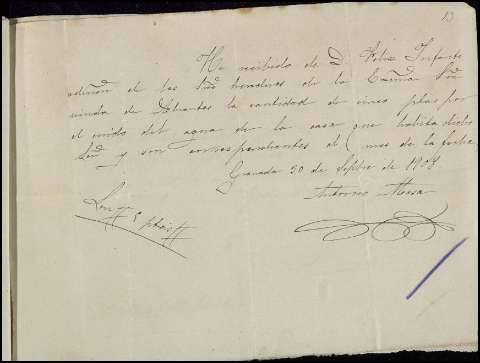 13
He recibido de D. Felix Infante
admor de los Sres herederos de la Excma Sra
viuda de Abrantes la cantidad de cinco ptas por
el cuido del agua de la casa que habita dicha
Sra y son correspondientes al mes de la fecha
Granada 30 de Septbre de 1908
Antonio Mesa
Son 5 ptas